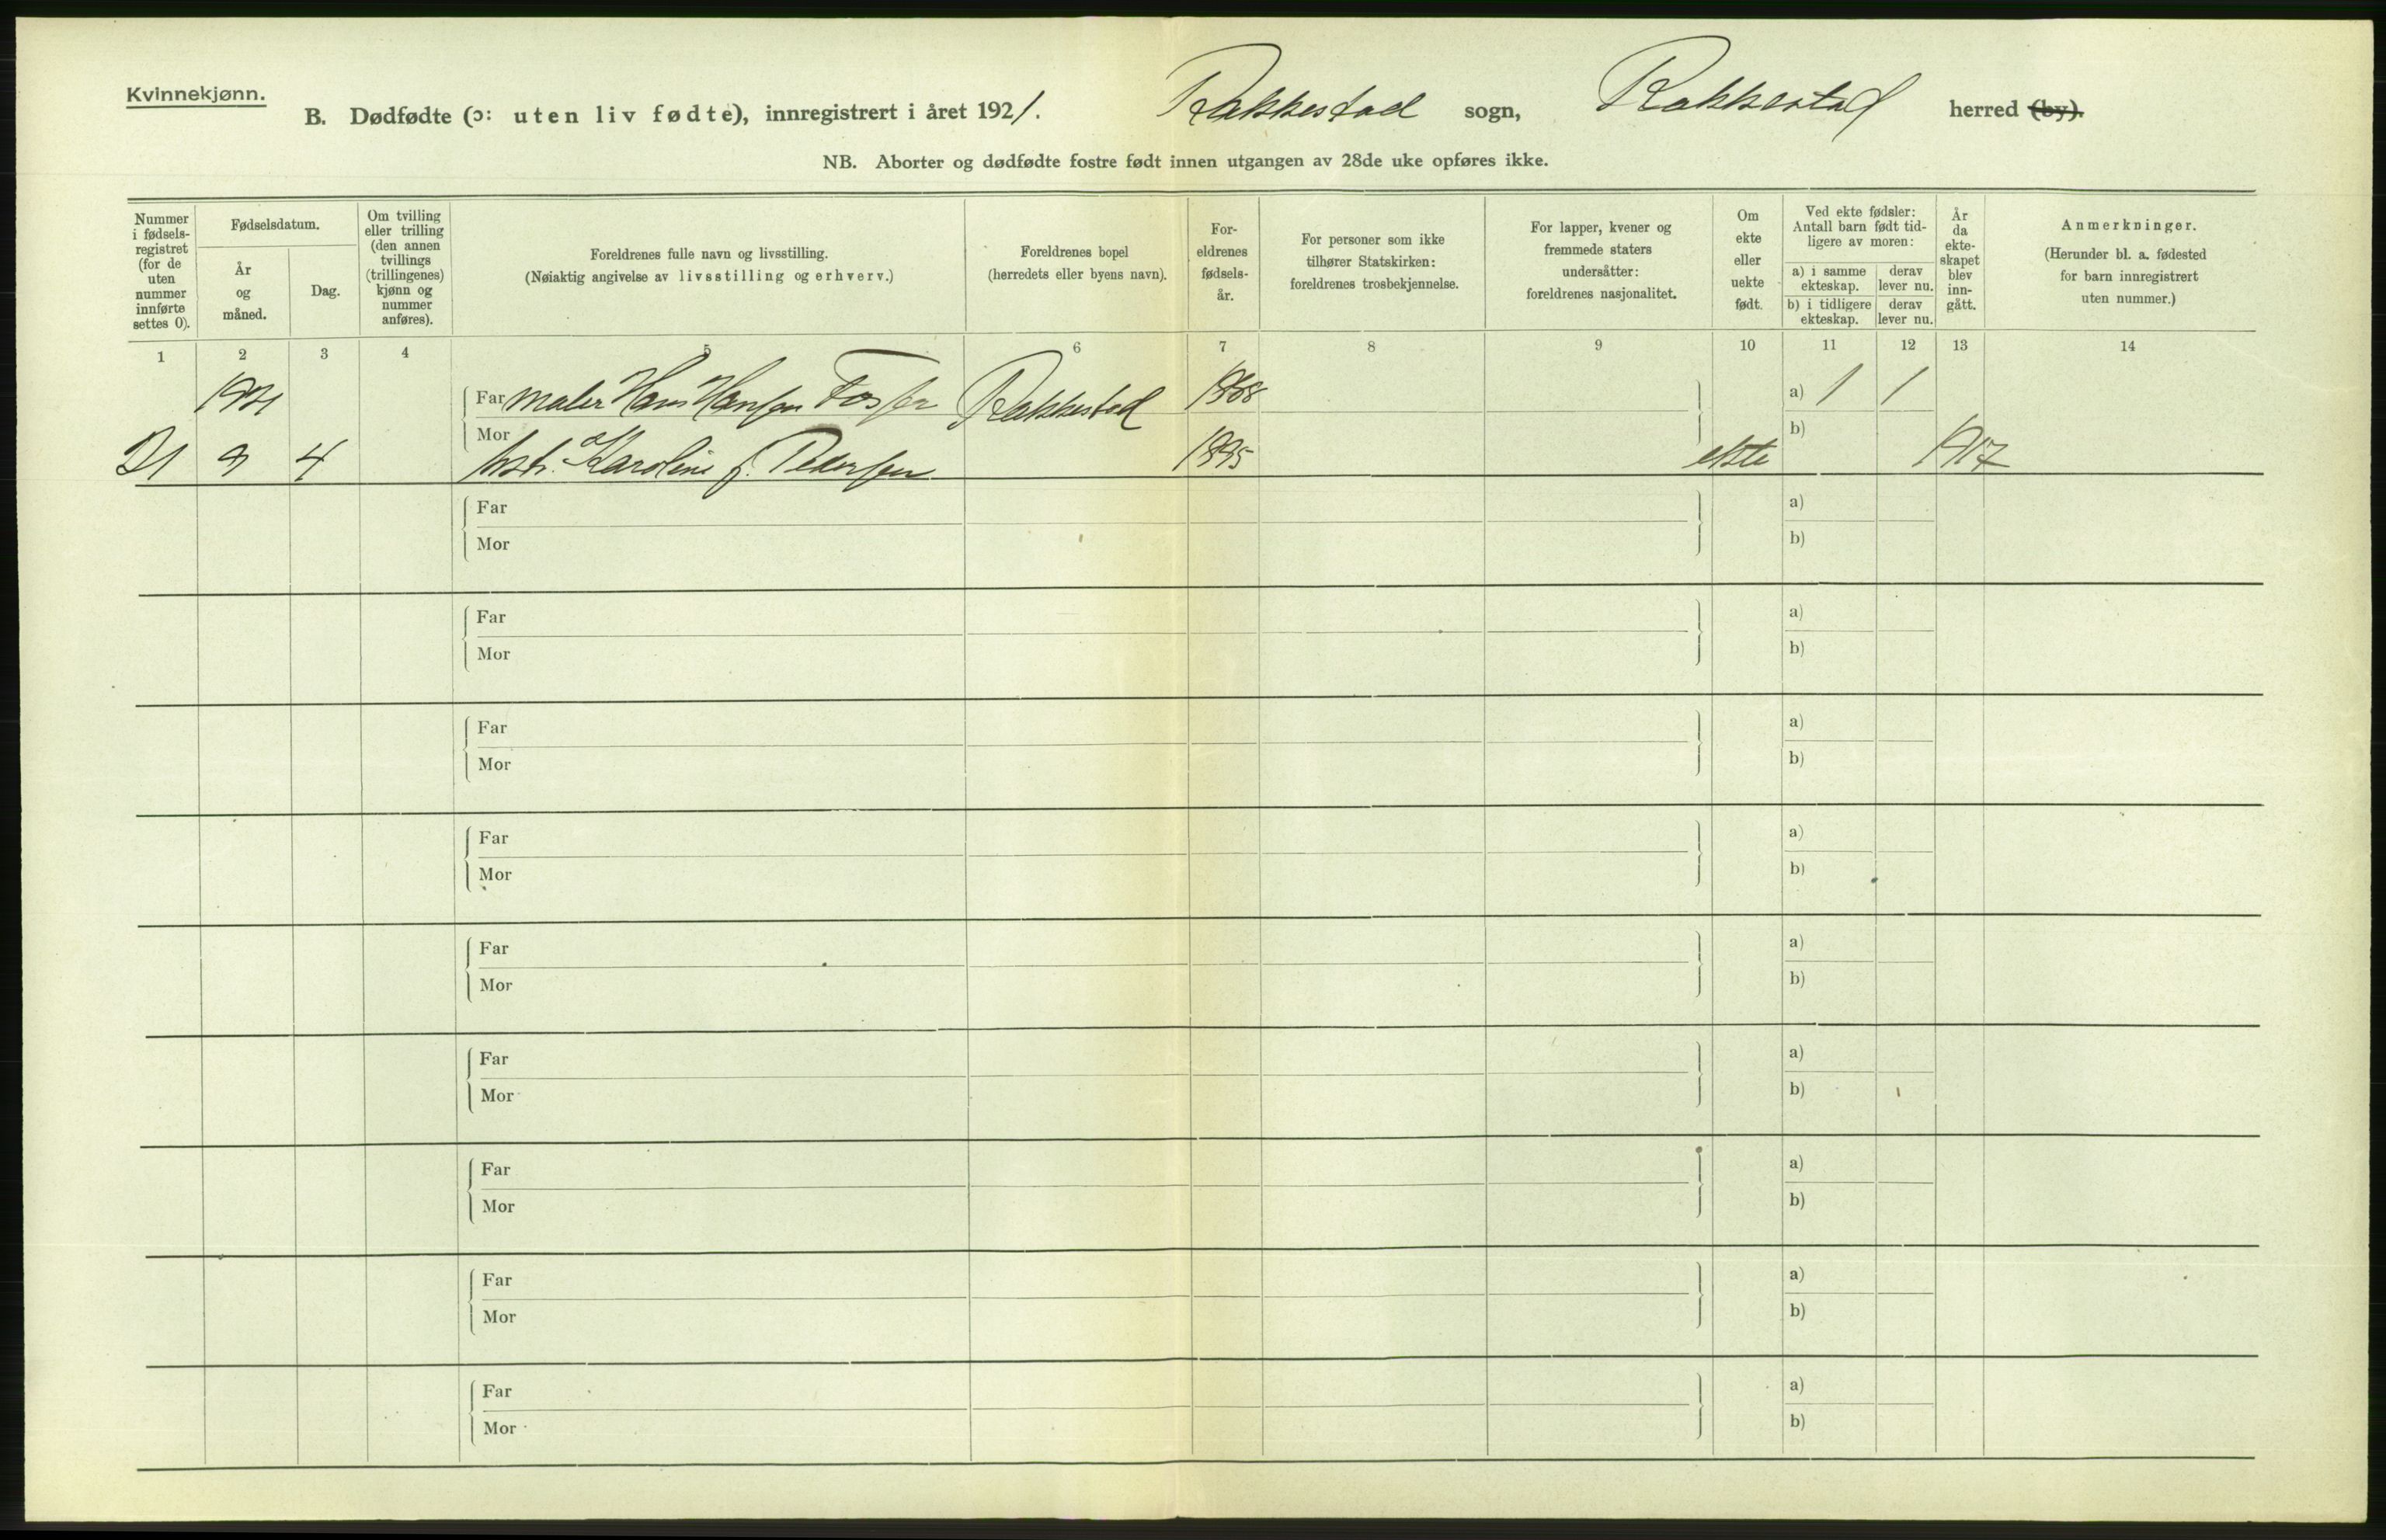 Kvinnekjønn.
B. Dødfødte (ɔ: uten liv fødte), innregistrert i året 1921. Rakkestad sogn, Rakkestad herred (by).
NB. Aborter og dødfødte fostre født innen utgangen av 28de uke opføres ikke.
Nummer i fødsels-registret (for de uten nummer innførte settes 0).
Fødselsdatum.
År og måned.
Dag.
Om tvilling eller trilling (den annen tvillings (trillingenes) kjønn og nummer anføres).
Foreldrenes fulle navn og livsstilling.
(Nøiaktig angivelse av livsstilling og erhverv.)
Foreldrenes bopel
(herredets eller byens navn).
For-eldrenes fødsels-år.
For personer som ikke tilhører Statskirken: foreldrenes trosbekjennelse.
For lapper, kvener og fremmede staters undersåtter: foreldrenes nasjonalitet.
Om ekte eller uekte født.
Ved ekte fødsler: Antall barn født tid-ligere av moren:
a) i samme ekteskap. derav lever nu.
b) i tidligere ekteskap. derav lever nu.
År da ekte-skapet blev inn-gått.
Anmerkninger.
(Herunder bl. a. fødested for barn innregistrert uten nummer.)
1 2 3 4 5 6 7 8 9 10 11 12 13 14
1921 Far Maler Hans Hansen Rakkestad 1888 a) 1 1
Mor b)
21 9 4 hstr. Karoline f. Pedersen 1895 ekte 1917
Far a)
Mor b)
Far a)
Mor b)
Far a)
Mor b)
Far a)
Mor b)
Far a)
Mor b)
Far a)
Mor b)
Far a)
Mor b)
Far a)
Mor b)
Far a)
Mor b)